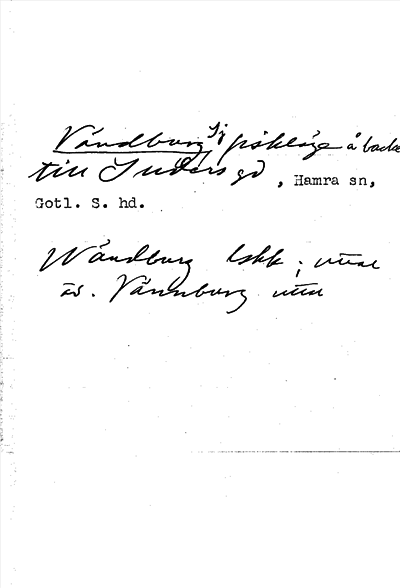 Vändburg, fiskläge å backe
till Suders gd, Hamra sn,
Gotl. S. hd.
Wändburg Iskk; uttal
äv. Vännburg